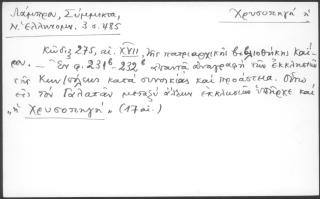 Λάμπρου, Σύμμικτα,
Χρυσοπηγή ἡ
Ν. Ἑλληνομν. 3 σ. 485
Κῶδιξ 275, αἰ. XVII, τῆς πατριαρχικῆς βιβλιοθήκης Καΐ-
ρου. — Ἐν φ. 231β - 232β ἀπαντᾷ ἀναγραφὴ τῶν ἐκκλησιῶν
τῆς Κων/πόλεως κατὰ συνοικίας καὶ προάστεια. Οὕτω
εἰς τὸν Γαλατᾶν μεταξὺ ἄλλων ἐκκλησιῶν ὑπῆρχε καὶ
"ἡ Χρυσοπηγή" (17 αἰ.)